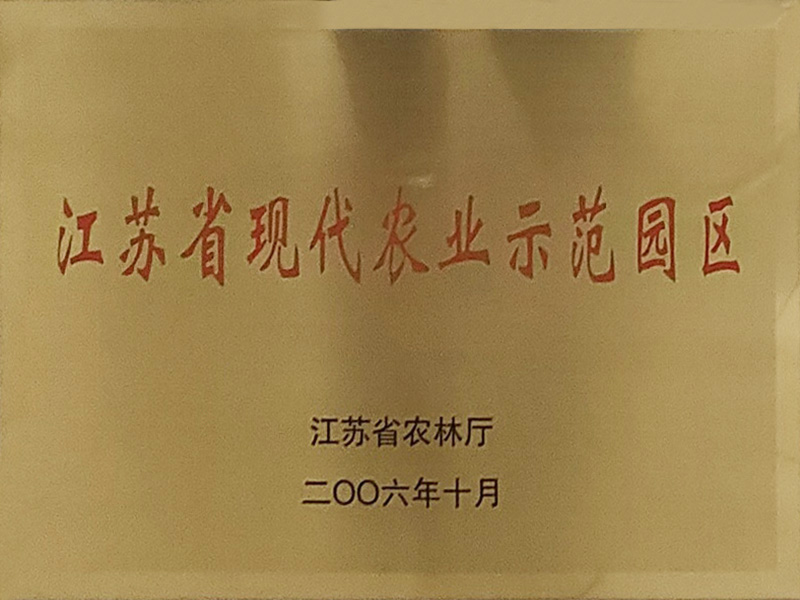 江苏省现代农业示范园区
江苏省农林厅
二〇〇六年十月